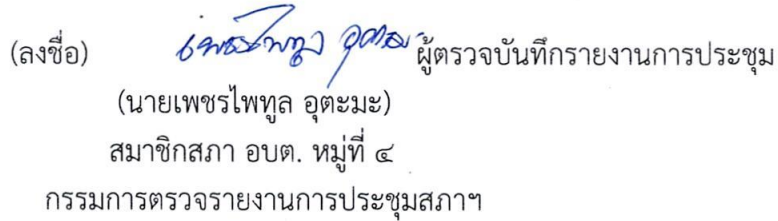 (ลงชื่อ) เพชรไพทูล อุตะมะ ผู้ตรวจบันทึกรายงานการประชุม
(นายเพชรไพทูล อุตะมะ)
สมาชิกสภา อบต. หมู่ที่ ๔
กรรมการตรวจรายงานการประชุมสภาฯ